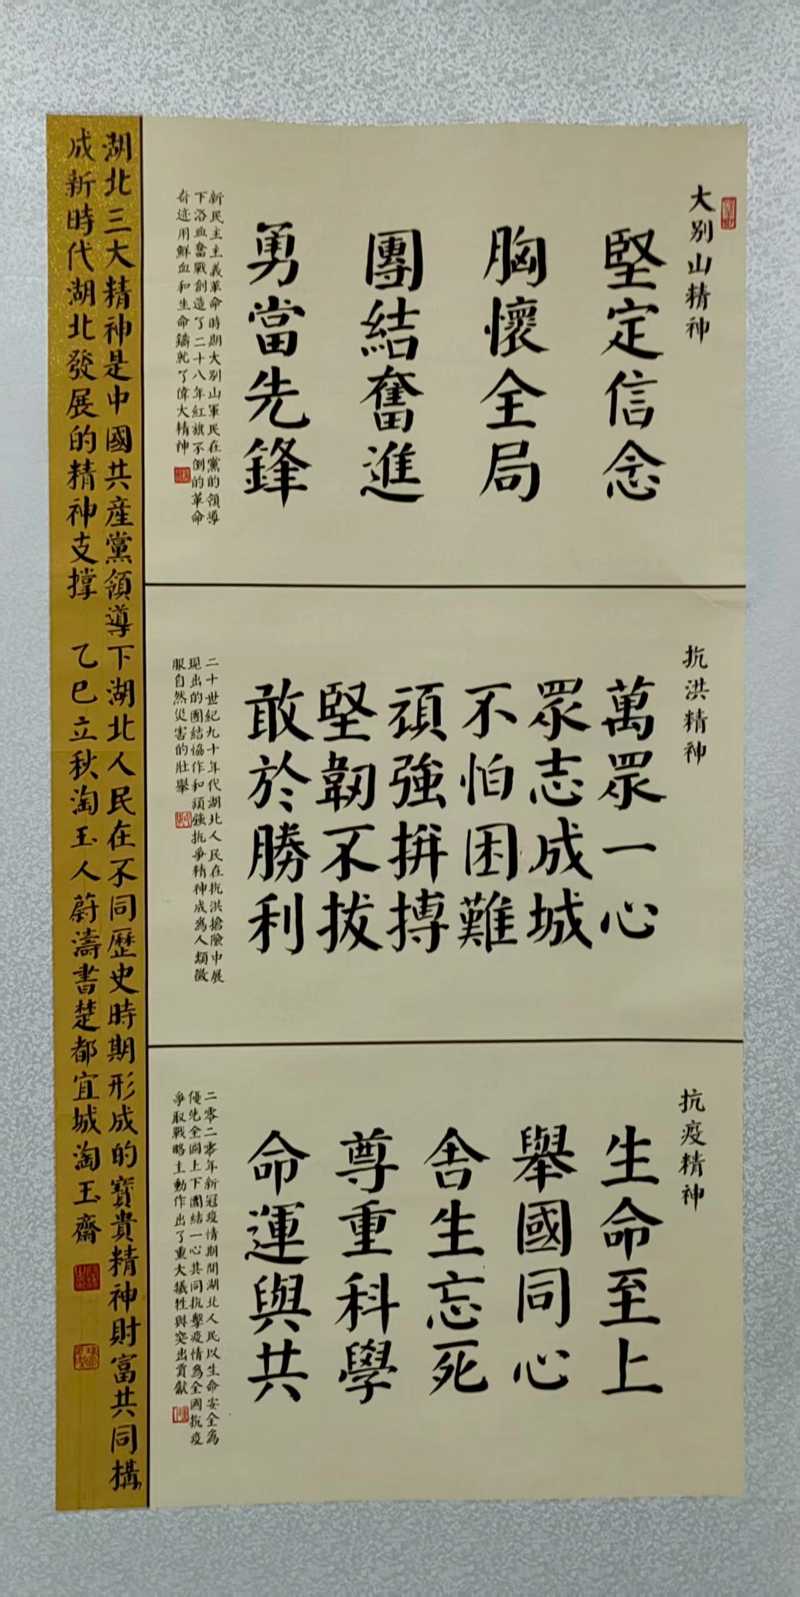 大别山精神
堅定信念
胸懷全局
團結奮進
勇當先鋒
新民主主義革命時期大别山軍民在黨的領導
下浴血奮戰創造了二十八年紅旗不倒的革命
奇迹用鮮血和生命鑄就了偉大精神
抗洪精神
萬眾一心
眾志成城
不怕困難
頑強拚搏
堅韌不拔
敢於勝利
二十世紀九十年代湖北人民在抗洪搶險中展
現出的團結協作和頑強抗爭精神成為人類徵
服自然災害的壯舉
抗疫精神
生命至上
舉國同心
舍生忘死
尊重科學
命運與共
二零二零年新冠疫情期間湖北人民以生命安全為
優先全國上下團結一心共同抗擊疫情為全國抗疫
爭取戰略主動作出了重大犧牲與突出貢獻
湖北三大精神是中國共產黨領導下湖北人民在不同歷史時期形成的寶貴精神財富共同構
成新時代湖北發展的精神支撐 乙巳立秋淘玉人蔚濤書楚都宜城淘玉齋